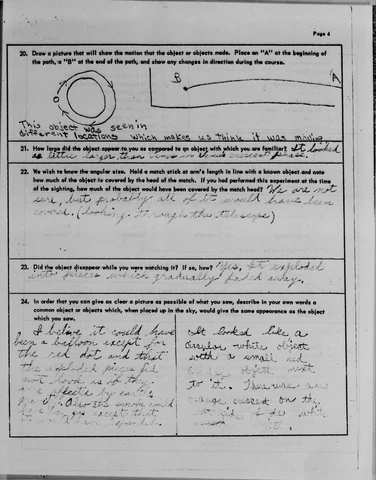 Page 4
20. Draw a picture that will show the motion that the object or objects made. Place an "A" at the beginning
of the path, a "B" at the end of the path, and show any changes in direction during the course.
B
A
This object was seen in
different locations which makes us think it was moving
21. How large did the object appear to you as compared to an object with which you are familiar? It looked
a little larger than Venus in Venus crescent phase.
22. We wish to know the angular size. Hold a match stick at arm's length in line with a known object and note
how much of the object is covered by the head of the match. If you had performed this experiment at the time
of the sighting, how much of the object would have been covered by the match head? We are not
sure, but probably all of it would have been
covered. (looking through the telescope)
23. Did the object disappear while you were watching it? If so, how? Yes, It exploded
into pieces which gradually faded away.
24. In order that you can give as clear a picture as possible of what you saw, describe in your own words a
common object or objects which, when placed up in the sky, would give the same appearance as the object
which you saw.
I believe it could have
been a balloon except for
the red dot and that
the exploded pieces did
not look as if they
are effects by earth's
Also the smoke could
gas except that
It looked like a
circular white object
with a small red
object next
to it. There was an
orange crescent on the
side of the white